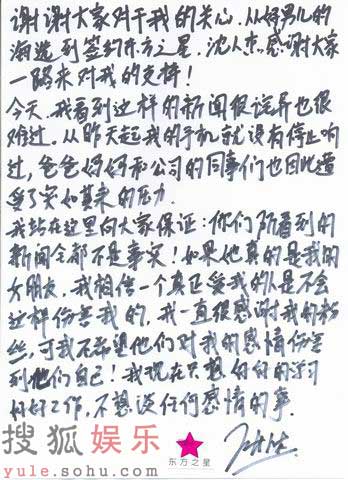 谢谢大家对于我的关心.从好男儿的
海选到签约东方之星.沈人杰感谢大家
一路来对我的支持!
今天.我看到这样的新闻很诧异也很
难过.从昨天起我的手机就没有停止响
过,爸爸妈妈和公司的同事们也因此遭
受了突如其来的压力.
我站在这里向大家保证:你们所看到的
新闻全都不是事实!如果他真的是我的
女朋友,我相信一个真正爱我的人是不会
这样伤害我的,我一直很感谢我的粉
丝,可我不希望他们对我的感情伤害
到他们自己!我现在只想好好的学习
好好工作,不想谈任何感情的事.
搜狐娱乐
yule.sohu.com
东方之星